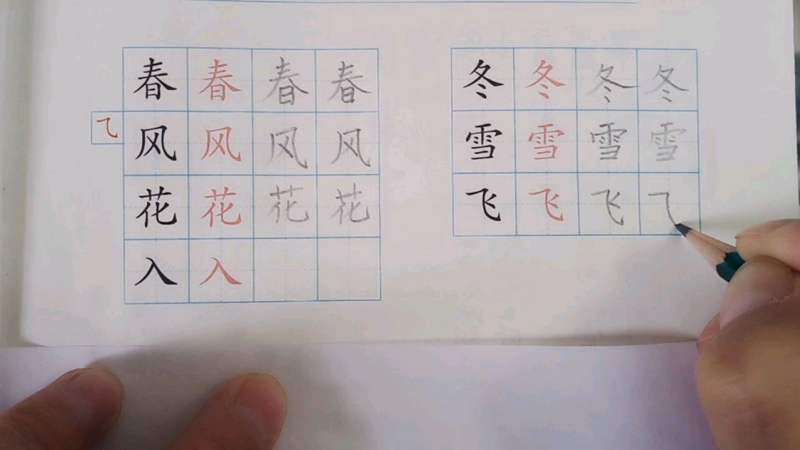 春 春 春 春
乁 风 风 风 风
花 花 花 花
入 入
冬 冬 冬 冬
雪 雪 雪 雪
飞 飞 飞 乁